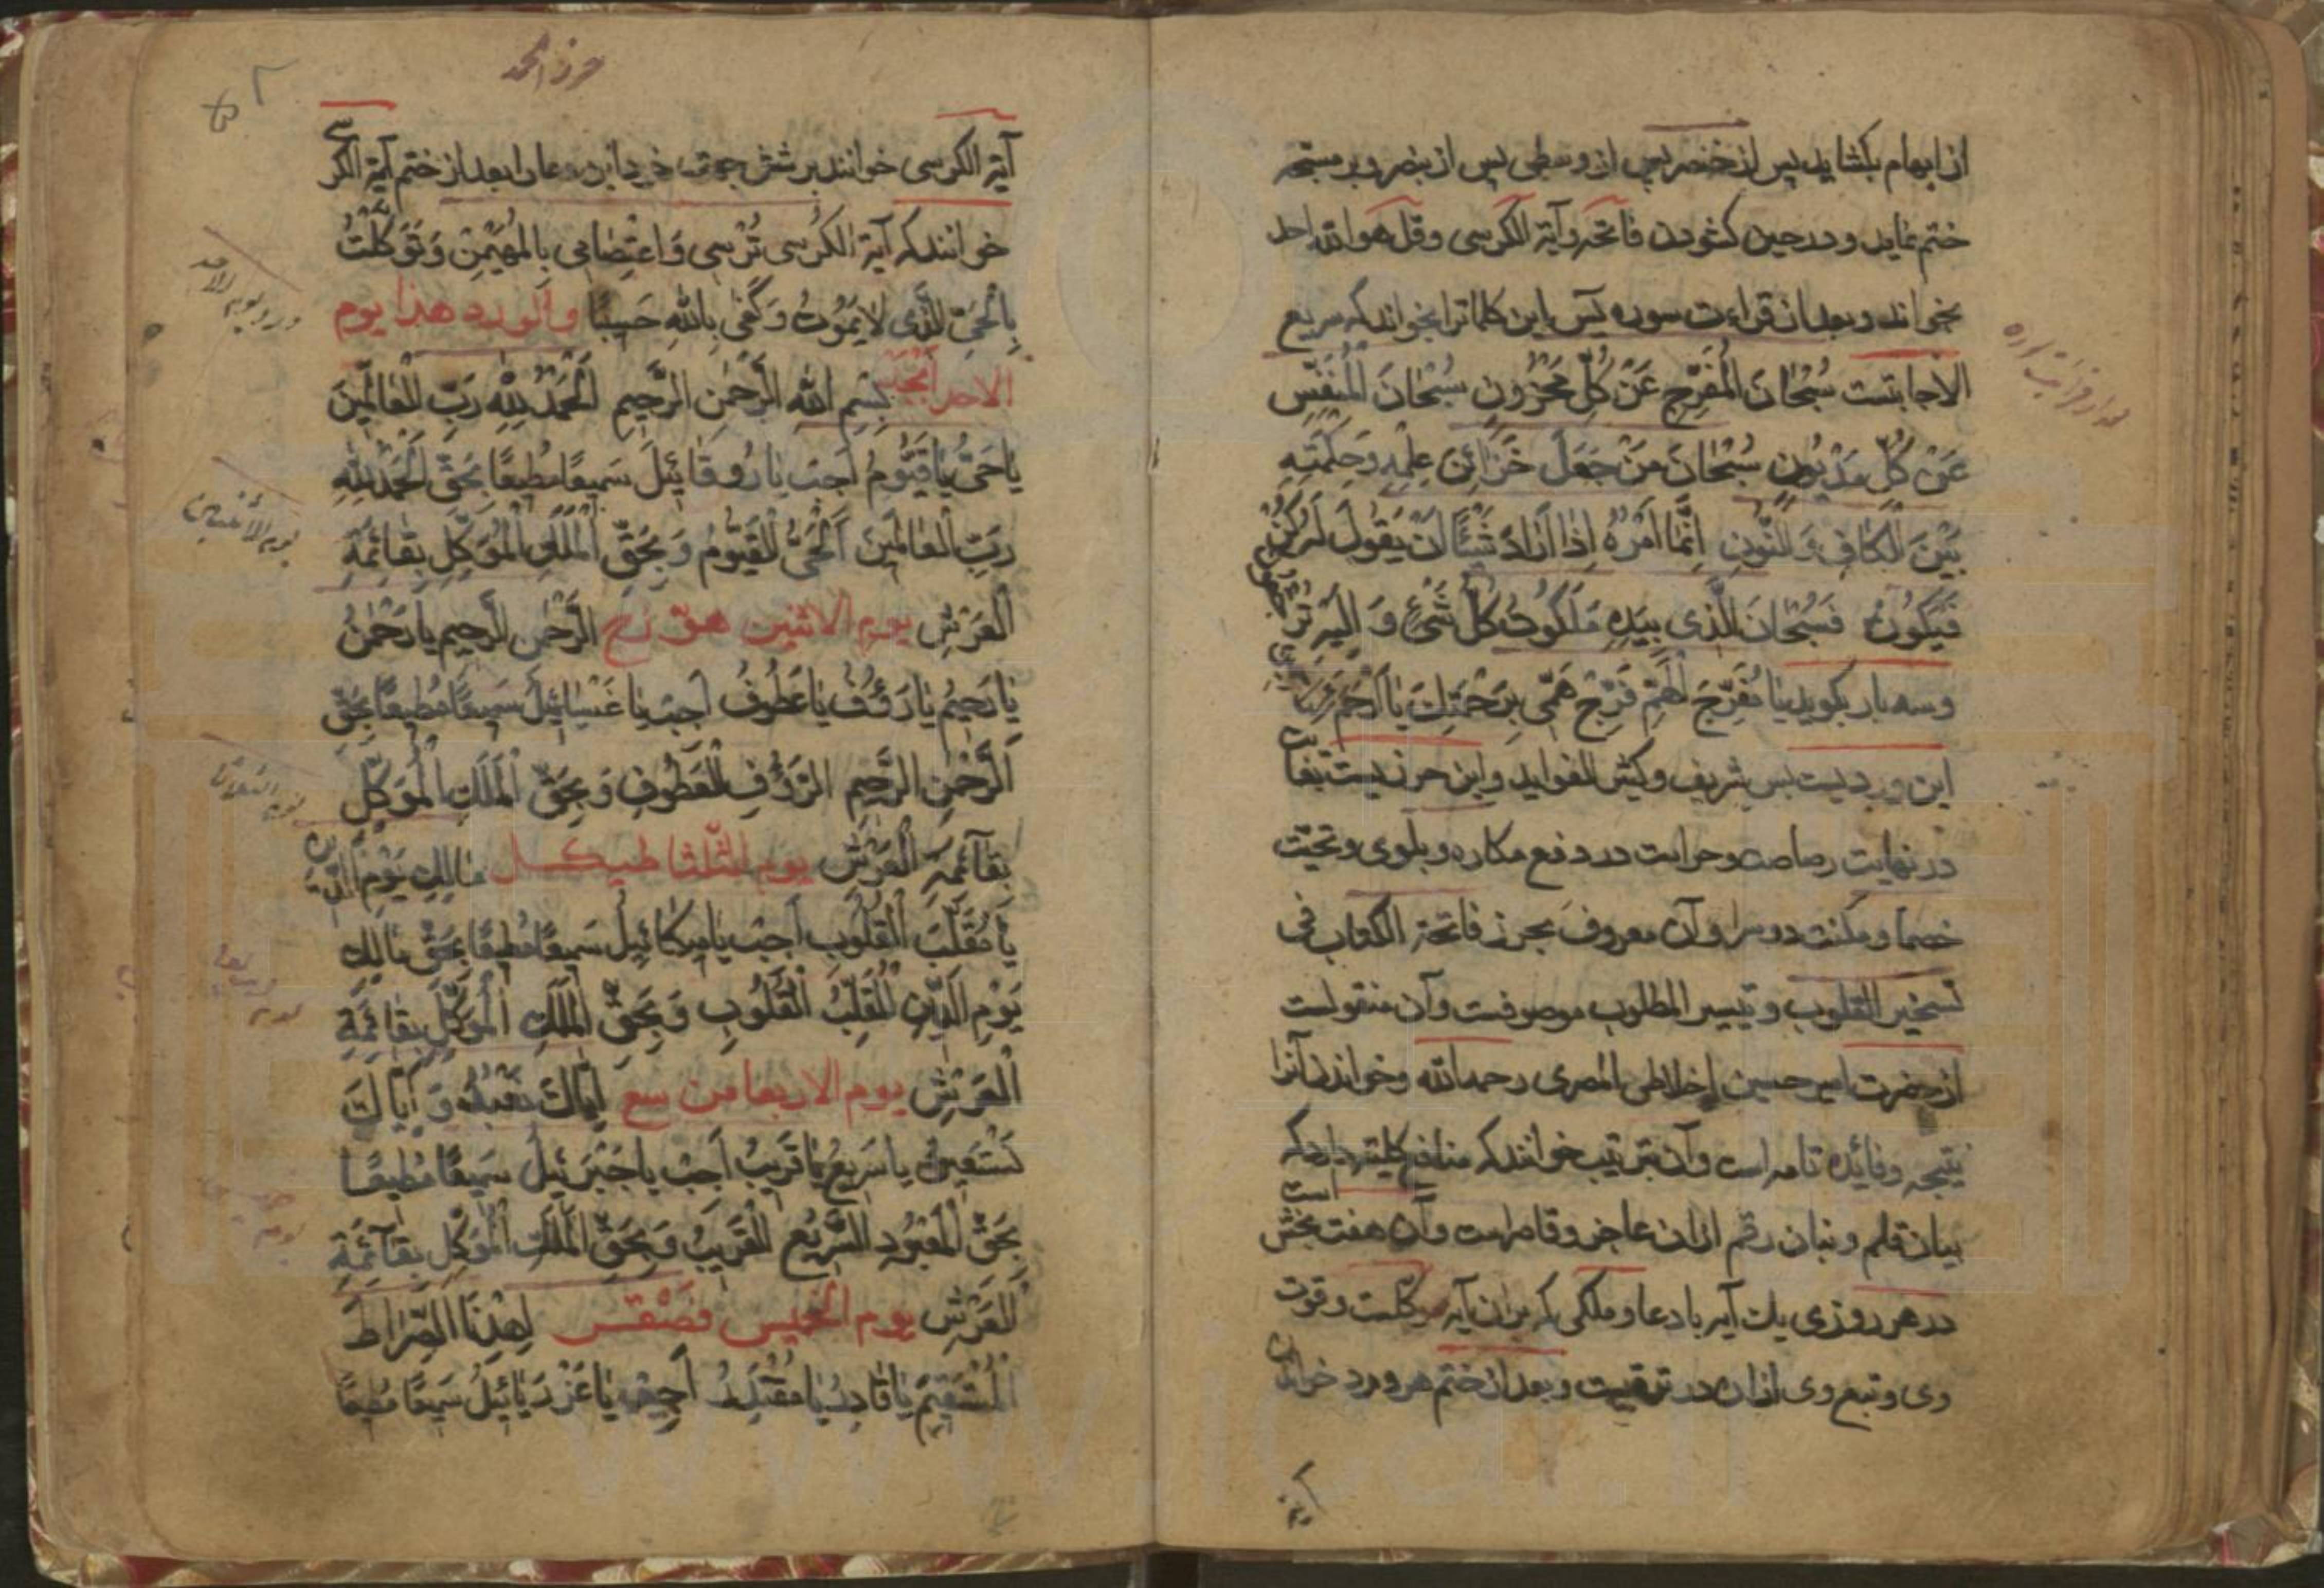 از ابهام بکشاید پس از خنصر پس از وسطی پس از بنصر و بر مسبحه
ختم نماید و در حین کشودن فاتحه و آیة الکرسی و قل هو الله احد
بخواند و بعد از قراءت سوره یس این کلماترا بخواند که سریع
الاجابتست سُبْحَانَ الْمُفَرِّجِ عَنْ كُلِّ مَحْزُونٍ سُبْحَانَ الْمُنَفِّسِ
عَنْ كُلِّ مَدْيُونٍ سُبْحَانَ مَنْ جَعَلَ خَزَائِنَ عِلْمِهِ وَحِكْمَتِهِ
بَيْنَ الْكَافِ وَالنُّونِ إِنَّمَا أَمْرُهُ إِذَا أَرَادَ شَيْئًا أَنْ يَقُولَ لَهُ كُنْ
فَيَكُونُ فَسُبْحَانَ الَّذِي بِيَدِهِ مَلَكُوتُ كُلِّ شَيْءٍ وَإِلَيْهِ تُرْجَعُونَ
و سه بار بکوید یَا مُفَرِّجَ الْهَمِّ فَرِّجْ هَمِّی بِرَحْمَتِكَ یَا أَرْحَمَ
این وردیست بس شریف و کثیر الفواید و این حرزیست بغایت
در نهایت رصاصت و حراست در دفع مکاره و بلوی و تحیت
خصما و مکنت دوسرا و آن معروف بحرز فاتحة الکتاب فی
تسخیر القلوب و تیسیر المطلوب موصوفست و آن منقولست
از حضرت امیر حسین اخلاطی المصری رحمه الله و خواندن آنرا
نتیجه و فائده تامه است و آن بترتیب خوانند که منافع کلیه دارد که
بیان قلم و بنان رقم از ان عاجز و قاصر است و آن هفت بخش است
در هر روزی یك آیه با دعا و ملکی که بر ان آیه موکلست و قوت
وی و تبع وی از ان در ترقیست و بعد از ختم هر ورد خواندن
حرز الحمد
آیة الکرسی خوانند بر شش جهت خود این دعا را بعد از ختم آیة الکرسی
خوانند که آیة الکرسی تُرْسِی وَاعْتِصَامِی بِالْمُهَیْمِنِ وَتَوَكَّلْتُ
بِالْحَیِّ الَّذِی لَا یَمُوتُ وَكَفَى بِاللَّهِ حَسِیبًا والورد هذا یوم
الاحد ابجد بِسْمِ اللَّهِ الرَّحْمٰنِ الرَّحِیمِ الْحَمْدُ لِلَّهِ رَبِّ الْعَالَمِینَ
یَا حَیُّ یَا قَیُّومُ أَجِبْ یَا رُوقَائِیلُ سَمِیعًا مُطِیعًا بِحَقِّ الْحَمْدُ لِلَّهِ
رَبِّ الْعَالَمِینَ الْحَیُّ الْقَیُّومُ وَبِحَقِّ الْمَلَكِ الْمُوَكَّلِ بِقَائِمَةِ
الْعَرْشِ یوم الاثنین هوزح الرَّحْمٰنِ الرَّحِیمِ یَا رَحْمٰنُ
یَا رَحِیمُ یَا رَؤُفُ یَا عَطُوفُ أَجِبْ یَا سَمِیعًا مُطِیعًا بِحَقِّ
الرَّحْمٰنِ الرَّحِیمِ الرَّؤُفِ الْعَطُوفِ وَبِحَقِّ الْمَلَكِ الْمُوَكَّلِ
بِقَائِمَةِ الْعَرْشِ یوم الثلثا طیکل مَالِكِ یَوْمِ الدِّینِ
یَا مُقَلِّبَ الْقُلُوبِ أَجِبْ یَا مِیكَائِیلُ سَمِیعًا مُطِیعًا بِحَقِّ مَالِكِ
یَوْمِ الدِّینِ الْمُقَلِّبُ الْقُلُوبِ وَبِحَقِّ الْمَلَكِ الْمُوَكَّلِ بِقَائِمَةِ
الْعَرْشِ یوم الاربعا من سع إِیَّاكَ نَعْبُدُ وَإِیَّاكَ
نَسْتَعِینُ یَا سَرِیعُ یَا قَرِیبُ أَجِبْ یَا جَبْرَئِیلُ سَمِیعًا مُطِیعًا
بِحَقِّ الْمَعْبُودِ السَّرِیعِ الْقَرِیبُ وَبِحَقِّ الْمَلَكِ الْمُوَكَّلِ بِقَائِمَةِ
الْعَرْشِ یوم الخمیس فصقر اِهْدِنَا الصِّرَاطَ
الْمُسْتَقِیمَ یَا قَادِرُ یَا مُقْتَدِرُ أَجِبْ یَا عَزْرَیَائِیلُ سَمِیعًا مُطِیعًا